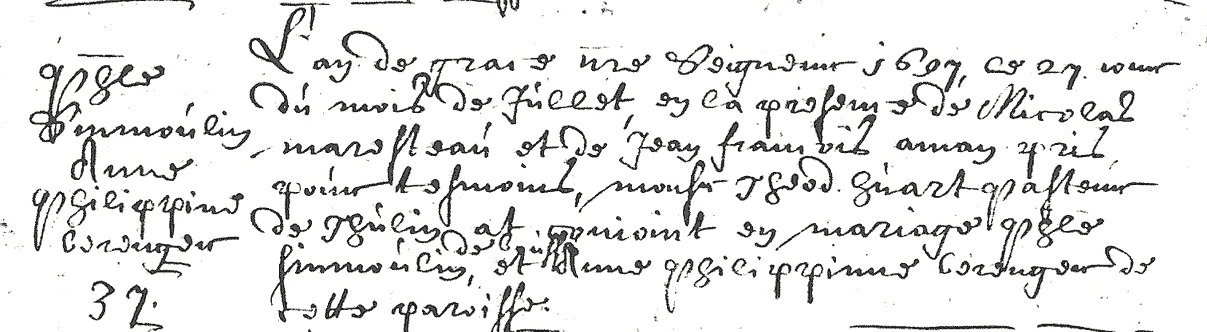 phle
Simmoulin
Anne
philippine
berenger
37.
L'an de grace nre Seigneur 1697, ce 27. iour
du mois de Jullet, en la presence de Nicolas
maresteau et de Jean francois aman pris
pour tesmoins, monsr Theod. huart pasteur
de Thulin at conioint en mariage phle
simmoulin, de et Anne philippinne berenger de
cette paroisse.